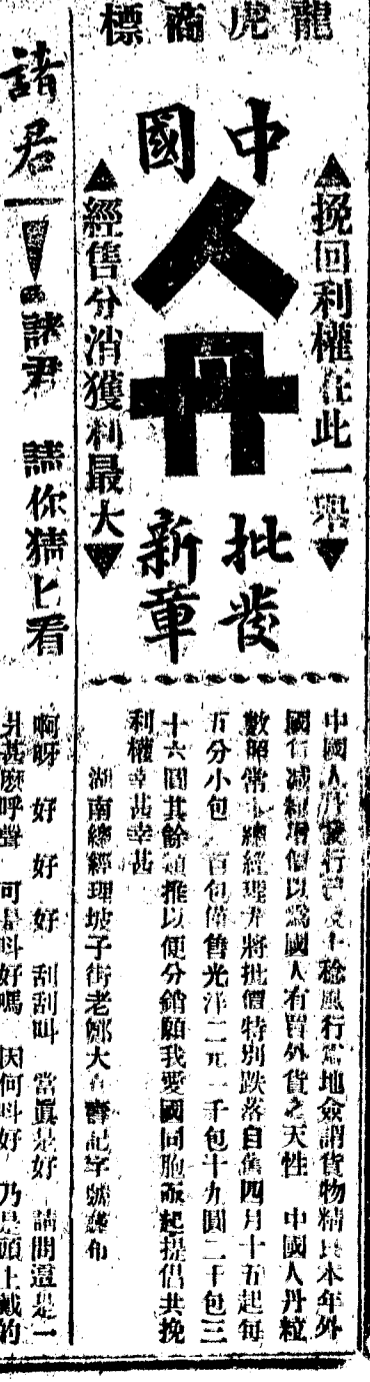 龍虎商標
▲挽回利權在此一舉▼
中國
人丹
批發
新章
▲經售分消獲利最大▼
中國人丹發行
稔風行
地僉謂貨物精良本年外
國仁減
增價以爲國人有買外貨之天性 中國人丹粒
數照常
總經理
將批價特別跌落自舊四月十五起每
五分小包
百包僅售光洋二元一千包十九圓二千包三
十六圓其餘類推以便分銷願我愛國同胞
起提倡共挽
利權幸甚幸甚
湖南總經理坡子街老鄭大
齊記字號
布
諸君
諸君 請你猜匕看
啊呀 好 好 好 刮刮叫 當眞是好 請問這是一
甚麽呼聲 可是叫好嗎 因何叫好 乃是頭上戴的